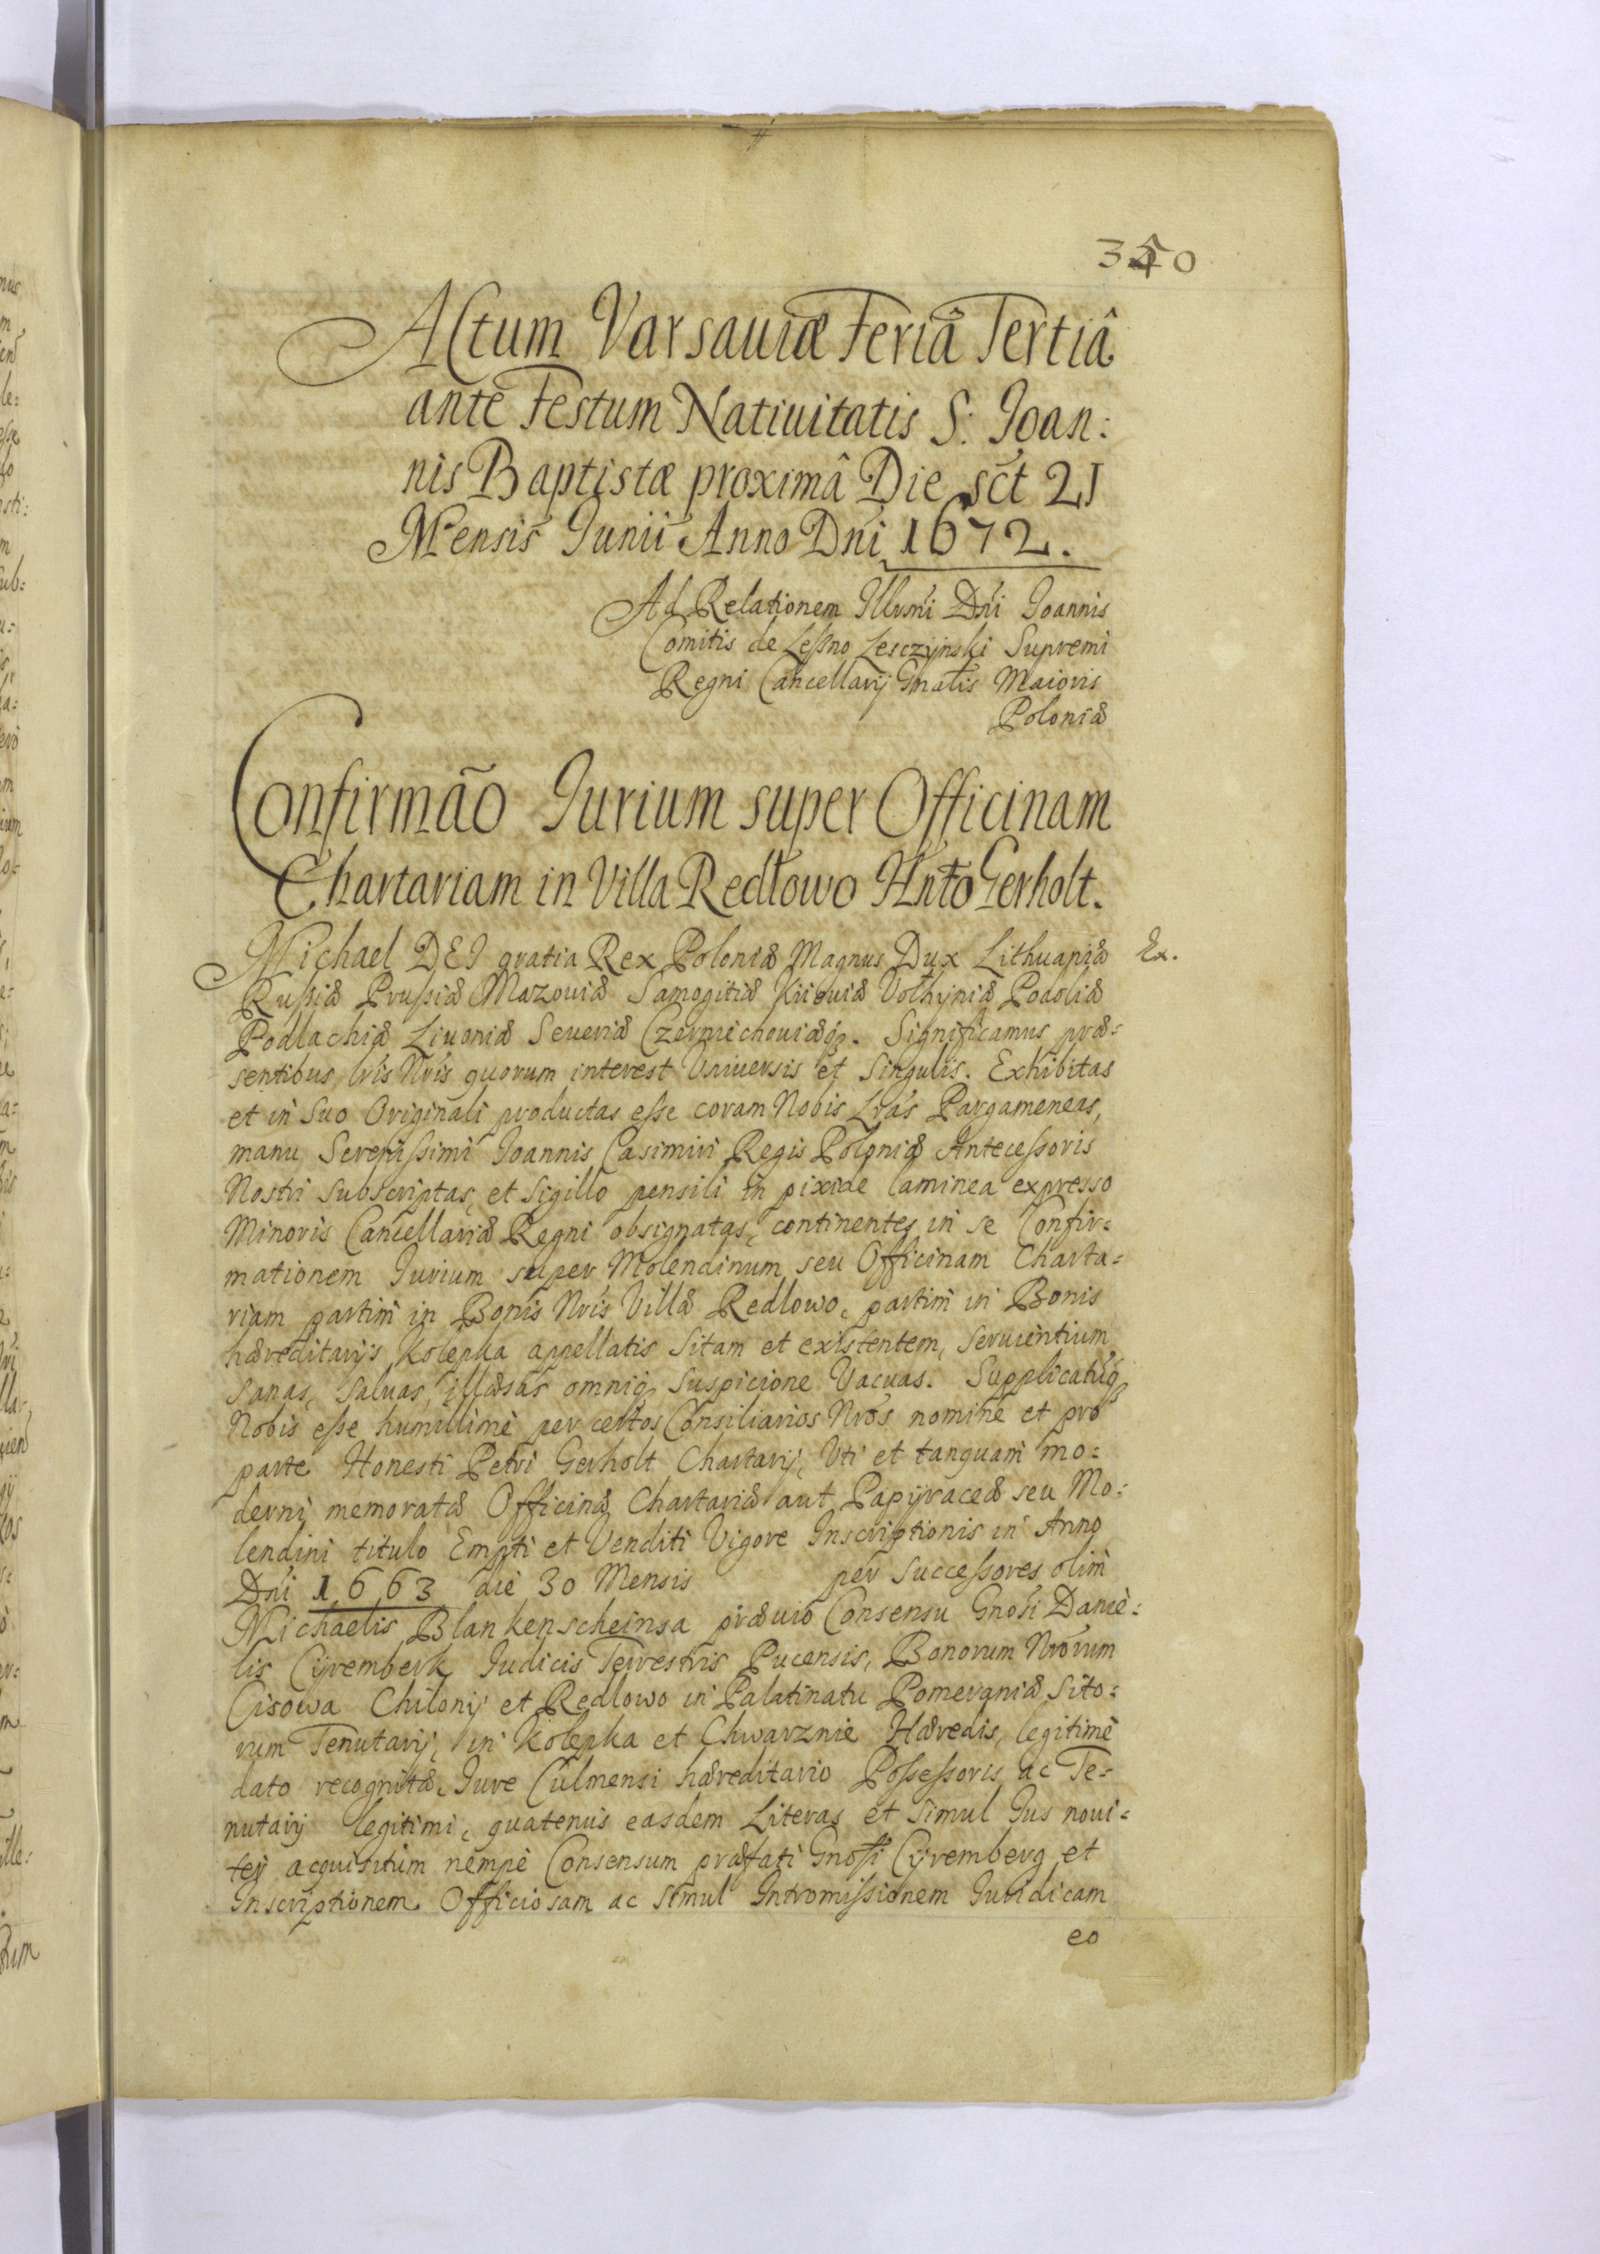 350
Actum Varsauiæ Feriâ Tertiâ
ante Festum Natiuitatis S: Joan:
nis Baptistæ proximâ Die sct 21
Mensis Junii Anno Dni 1672.
Ad Relationem Illvsmi Dni Joannis
Comitis de Leßno Lesczÿnski Supremi
Regni Cancellarij Gnalis Maioris
Poloniæ
Confirmão Jurium super Officinam
Chartariam in Villa Redłowo Hnto Gerholt.
Michael DEI gratia Rex Poloniæ Magnus Dux Lithuaniæ
Ex.
Rußiæ Prußiæ Mazouiæ Samogitiæ Kiiouiæ Volhÿniæ Podoliæ
Podlachiæ Liuoniæ Seueriæ Czerniechouiæq. Significamus præ:
sentibus lris Nris quorum interest Vniuersis et Singulis. Exhibitas
et in Suo Originali productas eße coram Nobis Lras Pargameneas,
manu Sereißimi Joannis Casimiri Regis Poloniæ Anteceßoris
Nostri Subscriptas, et Sigillo pensili in pixide laminea expresso
Minoris Cancellariæ Regni obsignatas, continentes in se Confir:
mationem Jurium super Molendinum seu Officinam Charta:
riam partim in Bonis Nris Villæ Redlowo, partim in Bonis
hæreditarijs Kolepka appellatis Sitam et existentem, Seruientium
Sanas, Saluas, illæsas omniq Suspicione Vacuas. Supplicatuq
Nobis eße humillimè per certos Consiliarios Nros nomine et pro
parte Honesti Petri Gerholt Chartarij, Vti et tanquam mo:
derni memoratæ Officinæ Chartariæ aut Papÿraceæ seu Mo:
lendini titulo Empti et Venditi Vigore Inscriptionis in Anno
Dni 1663 die 30 Mensis per Succeßores olim
Michaelis Blankenscheinsa præuio Consensu Gnosi Danie:
lis Cÿremberk Judicis Terrestris Pucensis, Bonorum Nrorum
Cisowa Chilonij et Redlowo in Palatinatu Pomeraniæ Sito:
rum Tenutarij, in Kolepka et Chwarznie Hæredis, legitimè
dato recognitæ, Jure Culmensi hæreditario Poßeßoris ac Te:
nutarij legitimi, quatenus easdem Literas et Simul Jus noui:
ter acquisitum nempè Consensum præfati Gnosi Cÿremberg et
Inscriptionem Officiosam ac Simul Intromißionem Juridicam
eo